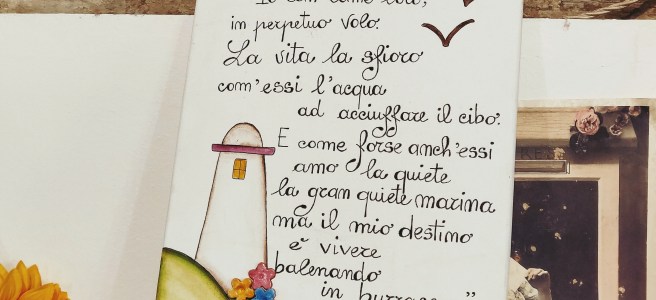 Io son come loro,
in perpetuo volo.
La vita la sfioro
com'essi l'acqua
ad acciuffare il cibo.
E come forse anch'essi
amo la quiete
la gran quiete marina
ma il mio destino
è vivere
balenando
in